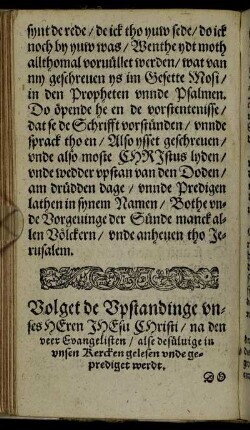 synt de rede / de ick tho yuw sede / do ick
noch by yuw was / Wenthe ydt moth
allthomal voruüllet werden / wat van
my geschreuen ys im Gesette Mosi /
in den Propheten vnnde Psalmen.
Do öpende he en de vorstentenisse /
dat se de Schrifft vorstünden / vnnde
sprack tho en / Also ysset geschreuen /
vnde also moste CHRIstus lyden /
vnde wedder vpstan van den Doden /
am drüdden dage / vnnde Predigen
lathen in synem Namen / Bothe vn-
de Vorgeuinge der Sünde manck al-
len Völckern / vnde anheuen tho Je-
rusalem.
Volget de Vpstandinge vn-
ses HEren JHEsu CHristi / na den
veer Euangelisten / alse desüluige in
vnsen Kercken gelesen vnde ge-
prediget werdt.